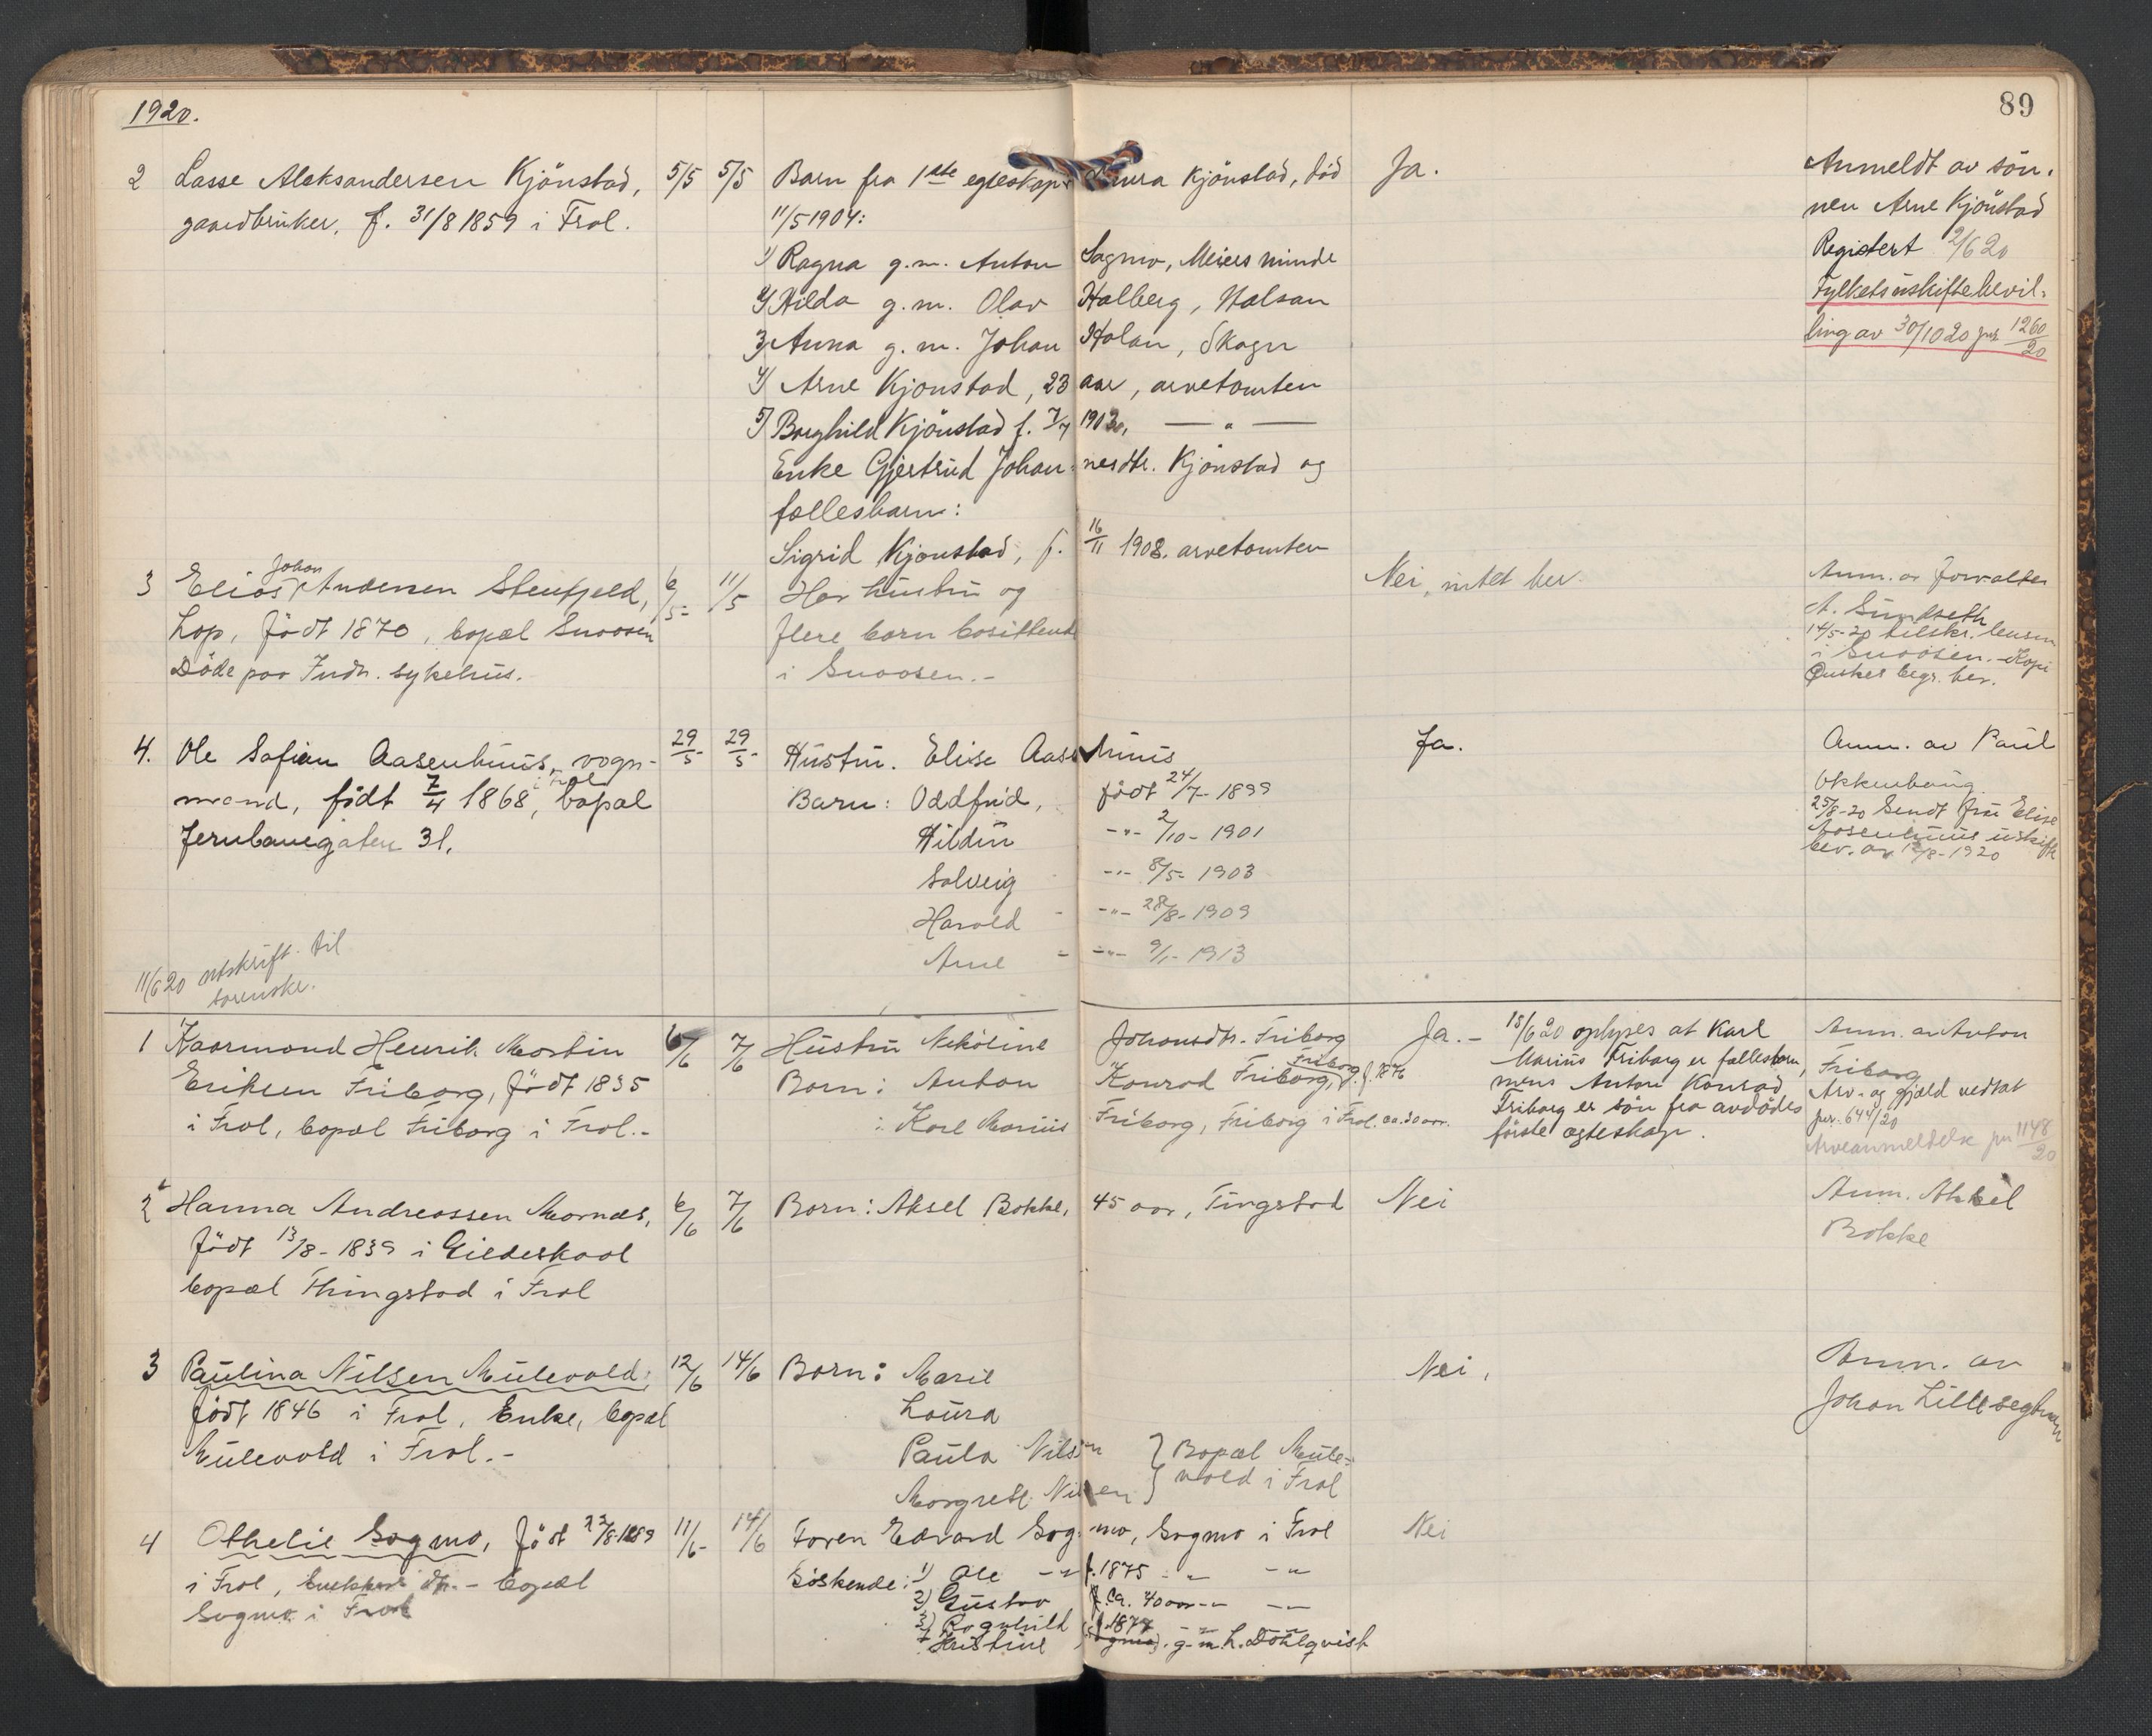 1920.
89
2 Lasse Aleksandersen Kjönstad, 5/5 5/5 Barn fra 1ste egteskap Laura Kjönstad, död Ja. Anmeldt av sön-
gaardbruker, f. 31/8 1859 i Frol. 11/5 1904: nen Arne Kjönstad
1) Ragna g.m. Anton Sagmo, Meiers minde Registert 2/6 20
2) Hilda g.m. Olav Halberg, Halsan Fylkets uskiftebevil-
3) Anna g.m. Johan Holan, Skogn ling av 30/10 20 jnr 1260/20
4) Arne Kjönstad, 23 aar, arvetomten
5) Borghild Kjönstad f. 7/7 1903, — " —
Enke Gjertrud Johan- nesdtr. Kjönstad og
fællesbarn:
Sigrid Kjönstad, f. 16/11 1908. arvetomten
3 Elias Johan Andersen Stenfjeld, 6/5- 11/5 Har hustru og Nei, intet her. Anm. av forvalter
Lap, födt 1870, bopæl Snaasen flere barn bosittende A. Sundseth
Döde paa Indh. sykehus. i Snaasen.- 14/5-20 tilskr. lensm
i Snaasen. - Kopi
Önskes begr. her.
4. Ole Sofian Aasenhuus, vogn- 29/5- 29/5- Hustru. Elise Aasenhuus Ja. Anm. av Paul
mand, födt 7/4 1868, i Frol bopæl Barn: Oddfrid, födt 24/7- 1899 Okkenhaug
Jernbanegaten 31. Hildur -"- 2/10- 1901 25/8-20 Sendt fru Elise
Aasenhuus uskifte
Solveig -"- 8/5- 1903 bev. av 12/8-1920
Harald -"- 28/8- 1909
Arne -"- 9/1- 1913
11/6 20 utskrift til
sorenskr.
1 Kaarmand Henrik Martin 6/6 7/6 Hustru Nikoline Johansdtr. Friborg Ja.- 15/6 20 oplyses at Karl Anm. av Anton
Eriksen Friborg, födt 1835 Barn: Anton Konrad Friborg, Friborg f. 1876 Marius Friborg er fællesbarn, Friborg
i Frol, bopæl Friborg i Frol.- : Karl Marius Friborg, Friborg i Frol. ca. 30 aar. mens Anton Konrad Arv- og gjæld vedtat
Friborg er sön fra avdödes jnr. 644/20
förste egteskap. Arveanmeldelse jnr 1148/20
2 Hanna Andreassen Mornæs, 6/6 7/6 Barn: Aksel Bokke, 45 aar, Tingstad Nei Anm. Aksel
födt 13/8- 1839 i Gildeskaal Bokke
bopæl Thingstad i Frol
3 Paulina Nilsen Mulevold, 12/6 14/6 Barn: Marie Nei, Anm. av
födt 1846 i Frol, Enke, bopæl Laura Johan Lillesegtnan
Mulevold i Frol.- Paula Nilsen } Bopæl Mule-
Margrete Nilsen } vold i Frol
4 Othelie Sogmo, födt 22/8-1889 11/6- 14/6 Faren Edvard Sogmo, Sogmo i Frol Nei
i Frol, dtr. - bopæl Söskende: 1) Ole -"- f. 1875 -"- -"-
Sogmo i Frol 2) Gustav f. ca. 40 aar -"- -"-
3) Ragnhild f. 1877 -"- -"-
4 Kristine (Sogmo) g.m. L. Dahlqvist